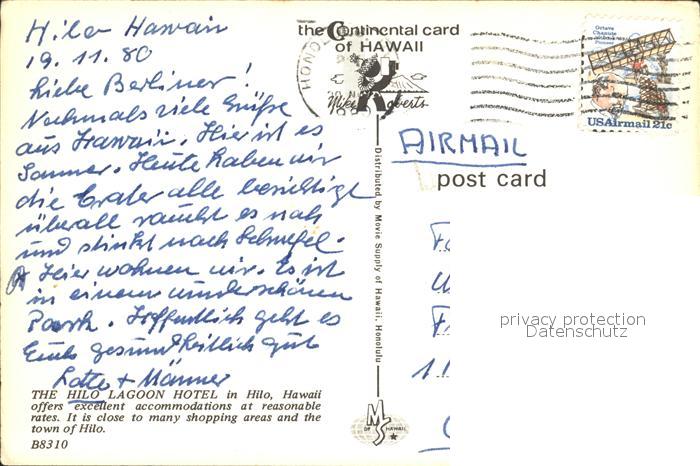 Hilo Hawaii
19.11.80
Liebe Berliner!
Nochmals viele Grüße
aus Hawaii. Hier ist es
Sommer. Heute haben wir
die Crater alle besichtigt
überall raucht es nach
und stinkt nach Schwefel.
Hier wohnen wir. Es ist
in einem wunderschönen
Park. Hoffentlich geht es
Euch gesundheitlich gut
Lotte +
THE HILO LAGOON HOTEL in Hilo, Hawaii
offers excellent accommodations at reasonable
rates. It is close to many shopping areas and the
town of Hilo.
B8310
the Continental card
of HAWAII
Mike Roberts
HONO
Distributed by Movie Supply of Hawaii, Honolulu
MS
OF HAWAII
Octave
Chanute
Aviation
Pioneer
USAirmail 21c
AIRMAIL
post card
privacy protection
Datenschutz